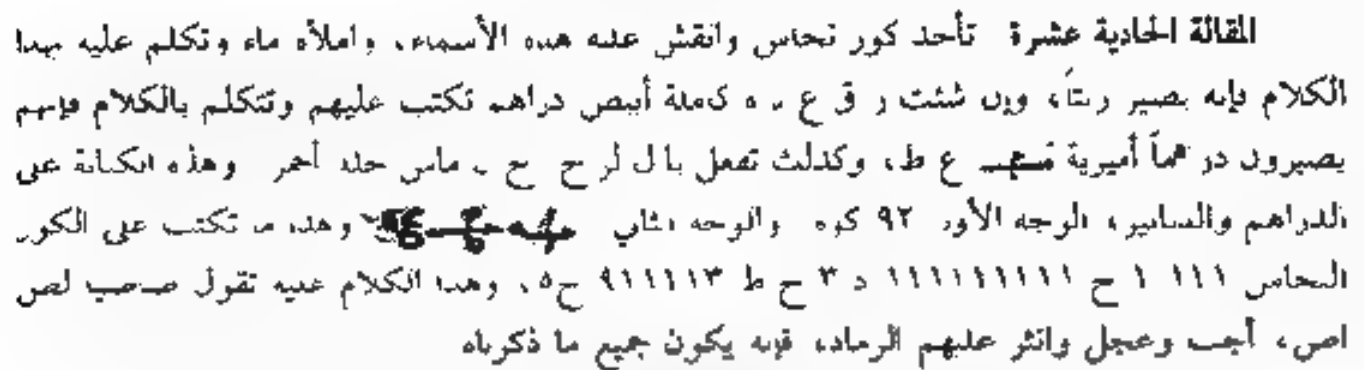 المقالة الحادية عشرة تأخذ كوز نحاس وانقش عليه هذه الأسماء، واملأه ماء وتكلم عليه بهذا
الكلام فإنه يصير زيتاً، وإن شئت ر ق ع ه كاملة أبيض دراهم تكتب عليهم وتتكلم بالكلام فإنهم
يصيرون درهماً أميرية ع ط، وكذلك تفعل با ل لر ح ح أحمر وهذه الكتابة على
الدراهم والدنانير، الوجه الأول ٩٢ والوجه الثاني وهذا ما تكتب على الكوز
النحاس ١١١ ١ ح ١١١١١١١١١ د ٣ ح ط ٩١١١١٣ ح٥، وهذا الكلام عليه تقول لص
اص، أجب وعجل وانثر عليهم الرماد، فإنه يكون جميع ما ذكرناه